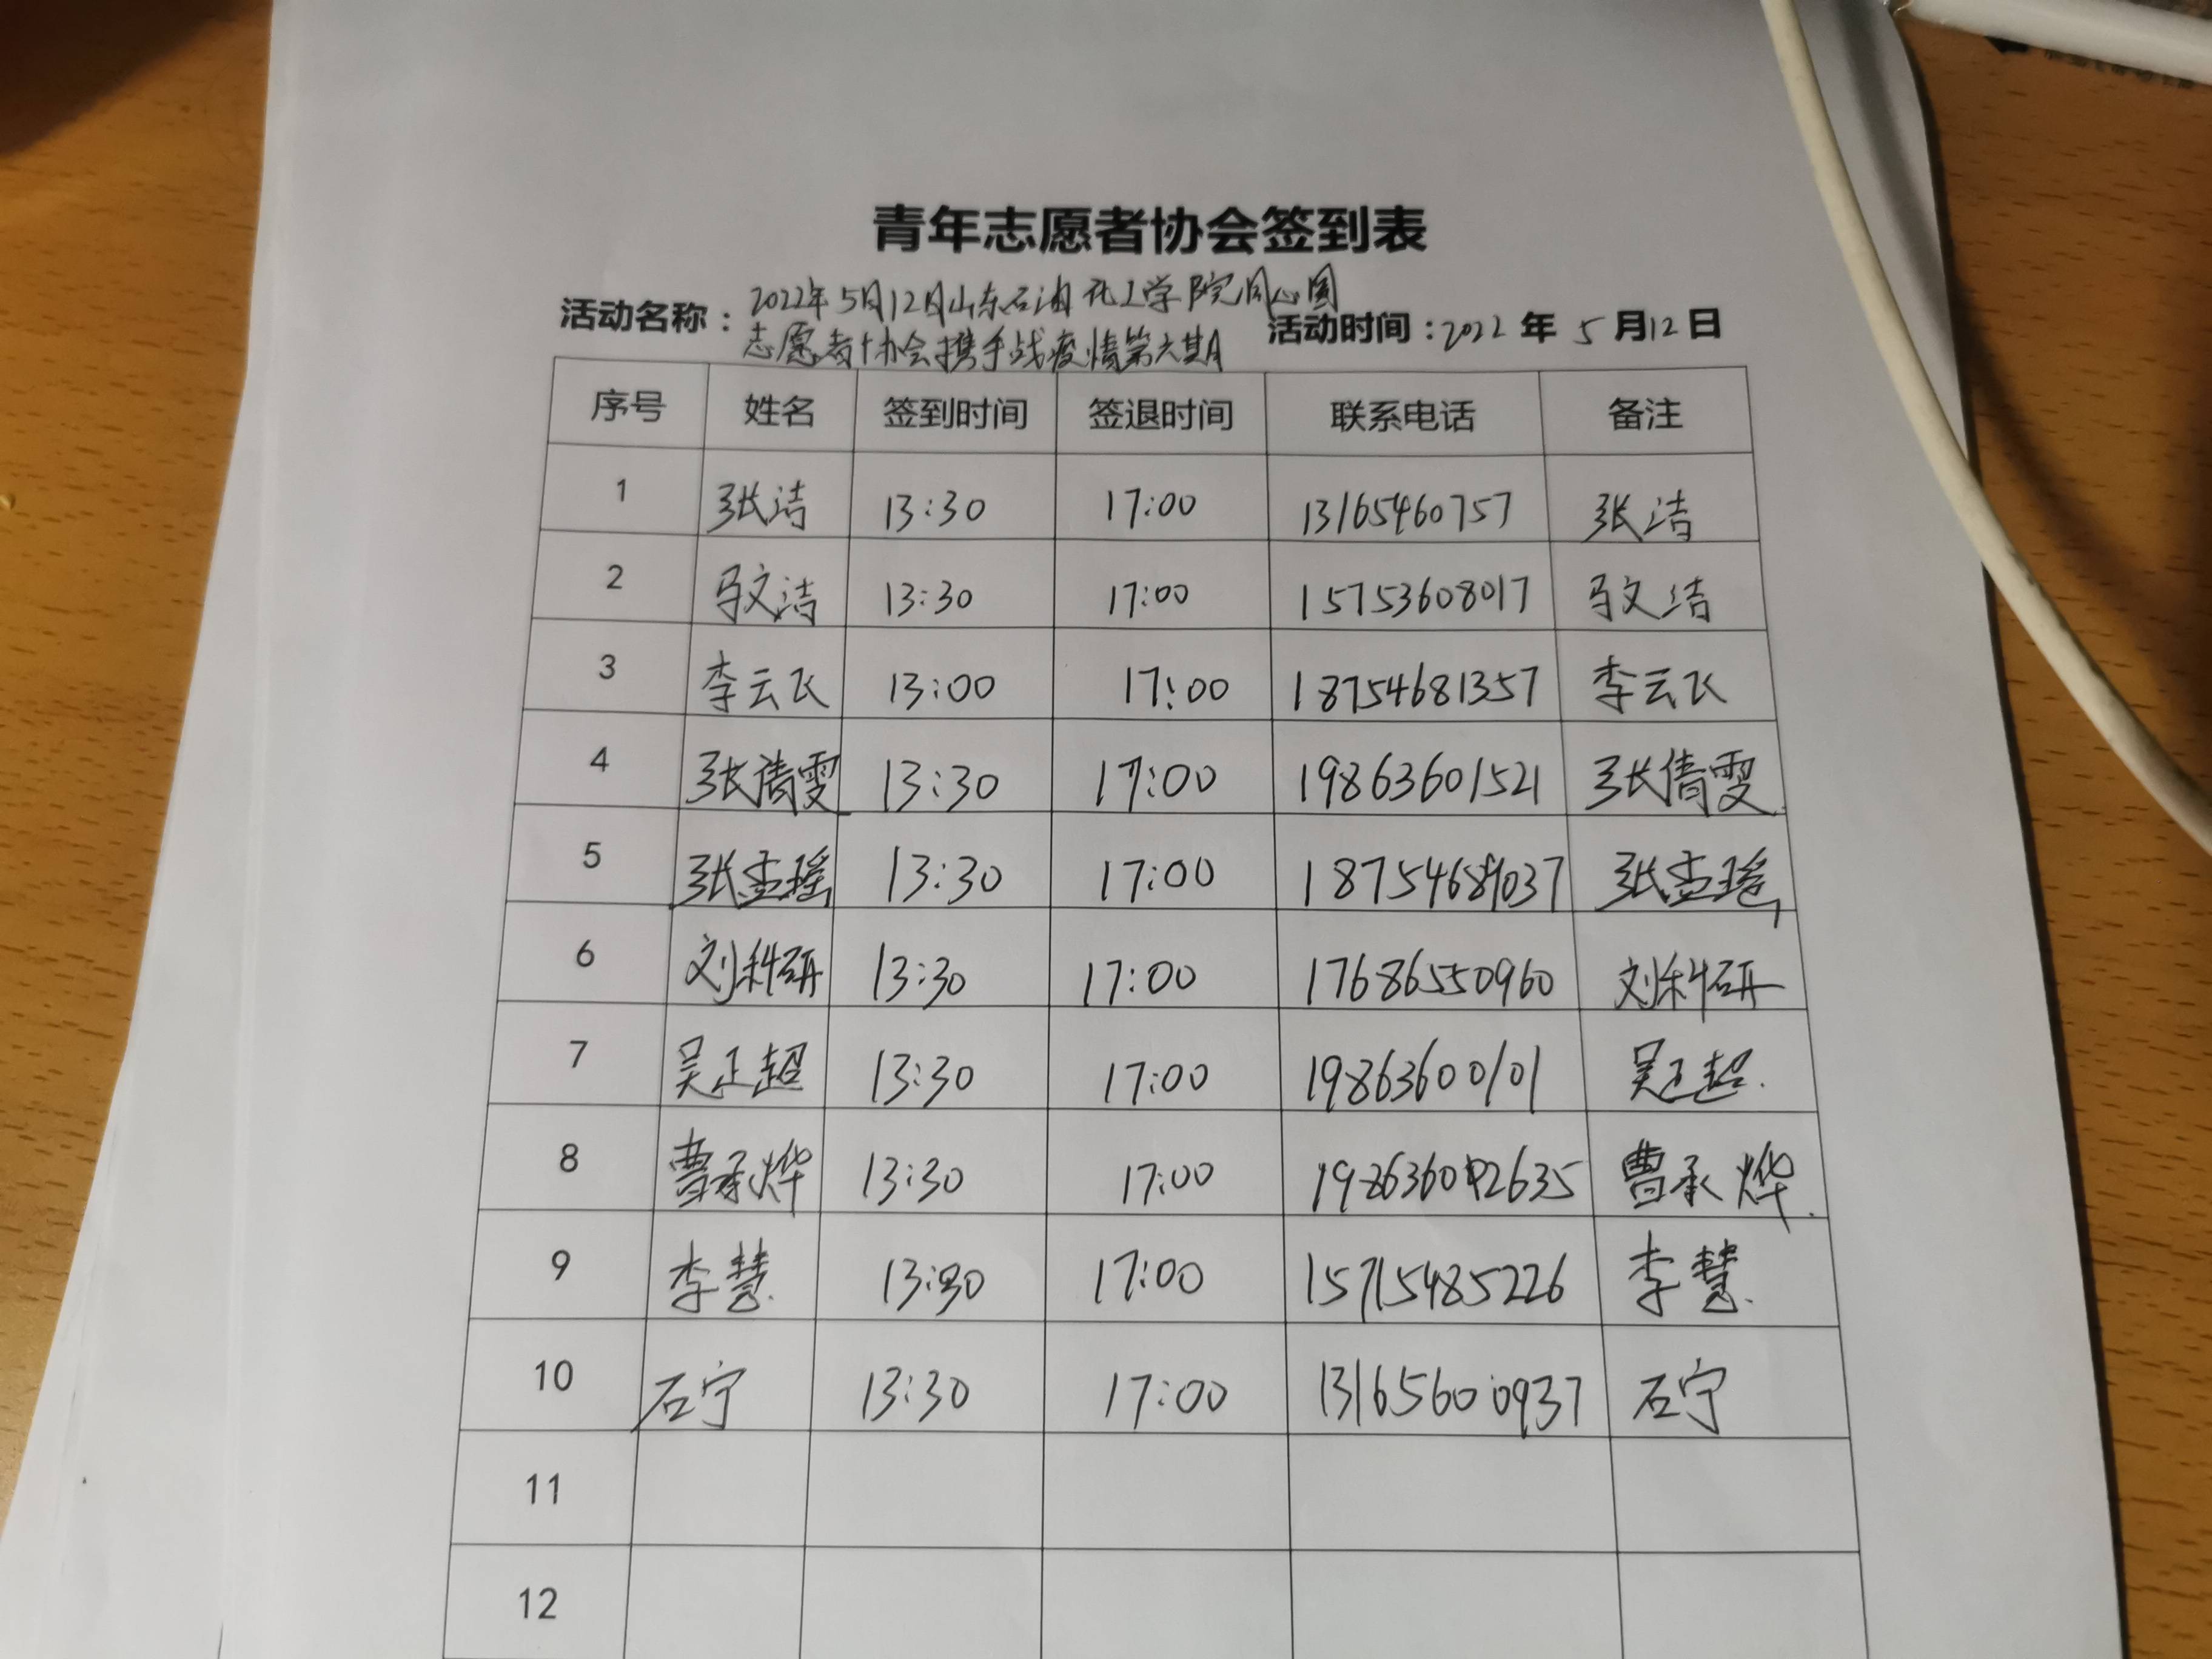 青年志愿者协会签到表
活动名称：2022年5月12日山东石油化工学院同心圆
志愿者协会携手战疫情第六期 活动时间：2022年5月12日
序号 姓名 签到时间 签退时间 联系电话 备注
1 张洁 13:30 17:00 13165460757 张洁
2 马文洁 13:30 17:00 15753608017 马文洁
3 李云飞 13:00 17:00 18754681357 李云飞
4 张倩雯 13:30 17:00 19863601521 张倩雯
5 张孟瑶 13:30 17:00 张孟瑶
6 刘科研 13:30 17:00 17686550960 刘科研
7 吴正超 13:30 17:00 19863600101 吴正超
8 曹承烨 13:30 17:00 曹承烨
9 李慧 13:30 17:00 15715485226 李慧
10 石宁 13:30 17:00 13165600937 石宁
11
12